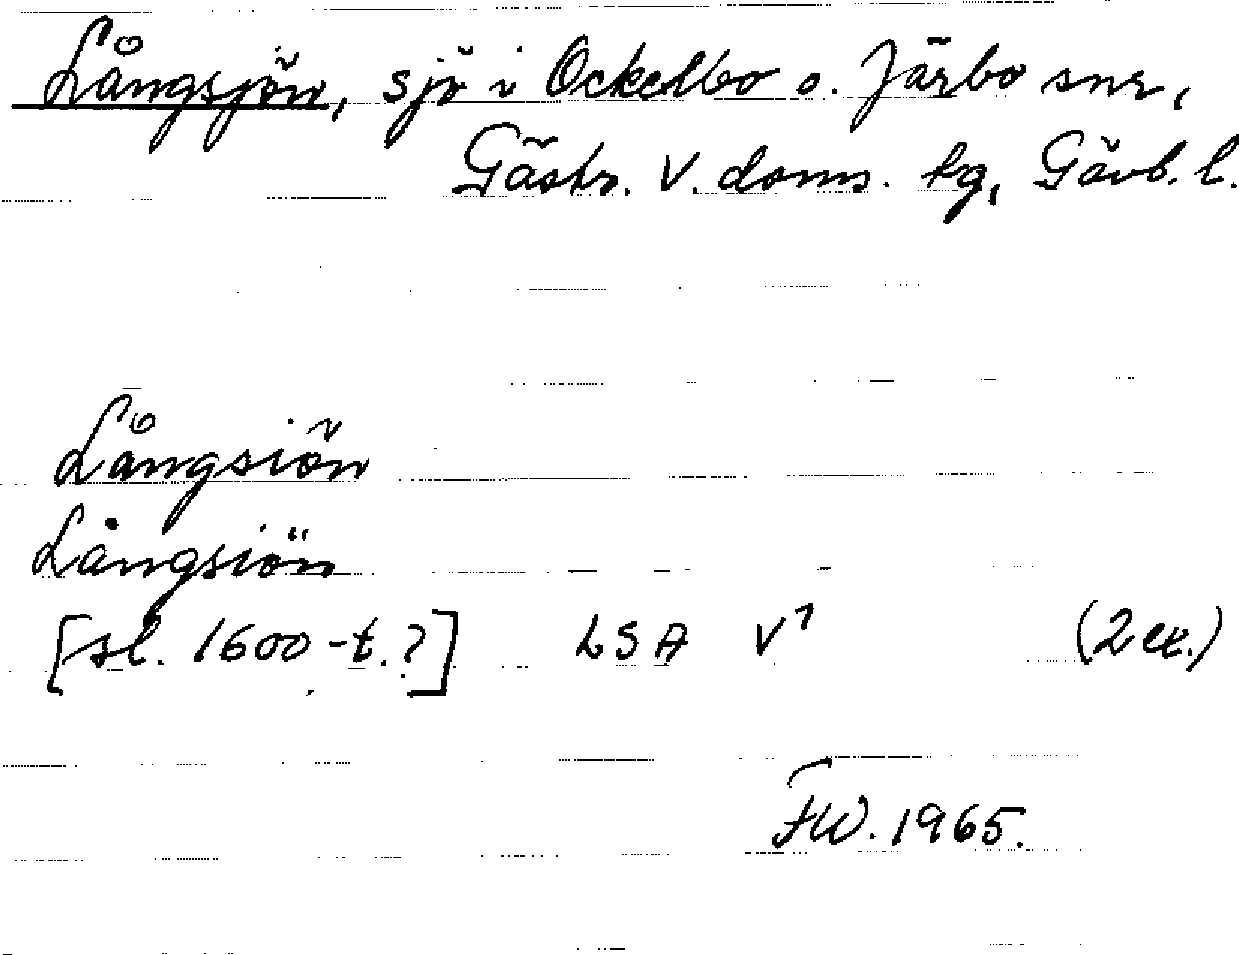 Långsjön, sjö i Ockelbo o. Järbo snr,
Gästr. V. doms. tg, Gävb. l.
Långsiön
Långsiön
[sl. 1600-t.?] LSA V1 (2 ex.)
FW. 1965.